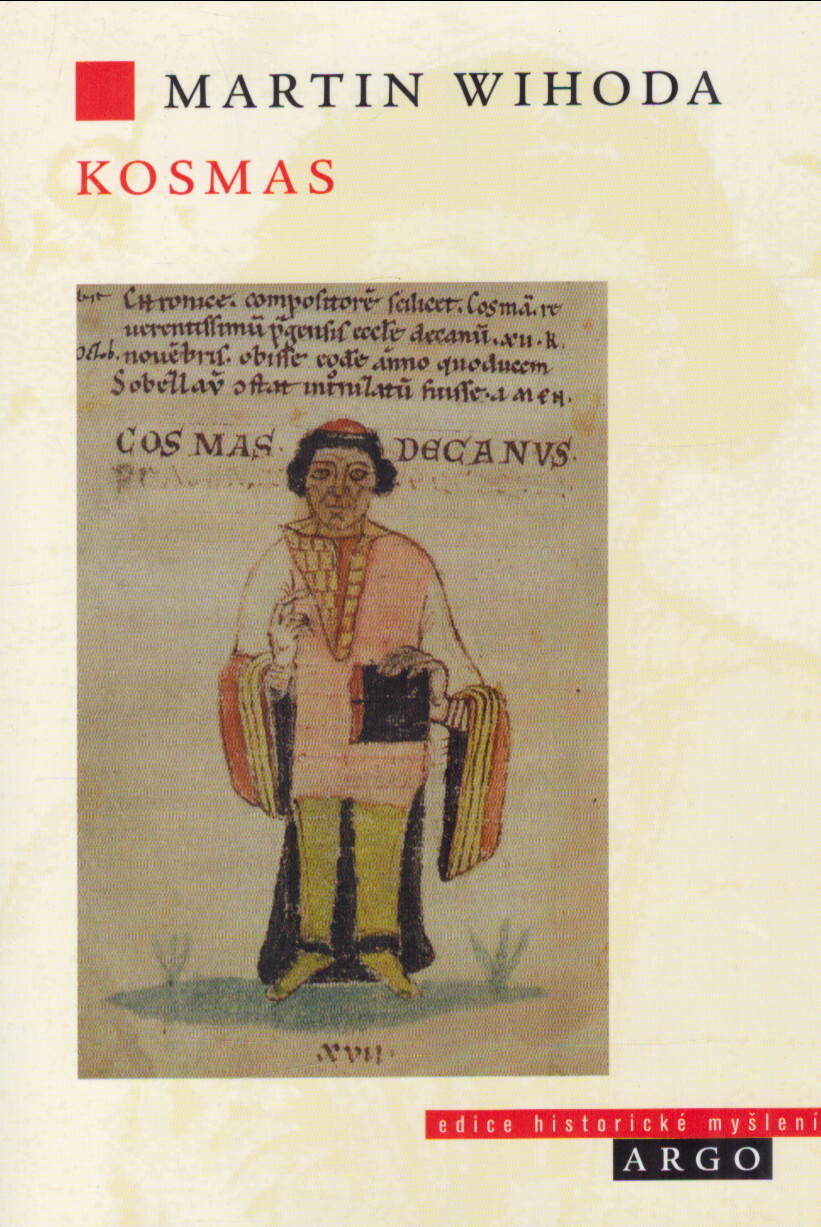 MARTIN WIHODA
KOSMAS
Chronice. compositorē scilicet. Cosmā. re
uerentissimū p̄gensis eccłe decanū. xii. k.
nouēbris. obisse eodē anno quo ducem
Sobeslaū ɔstat intͦnizatū fuisse. AMEN.
COSMAS. DECANVS.
XVII.
edice historické myšlení
ARGO